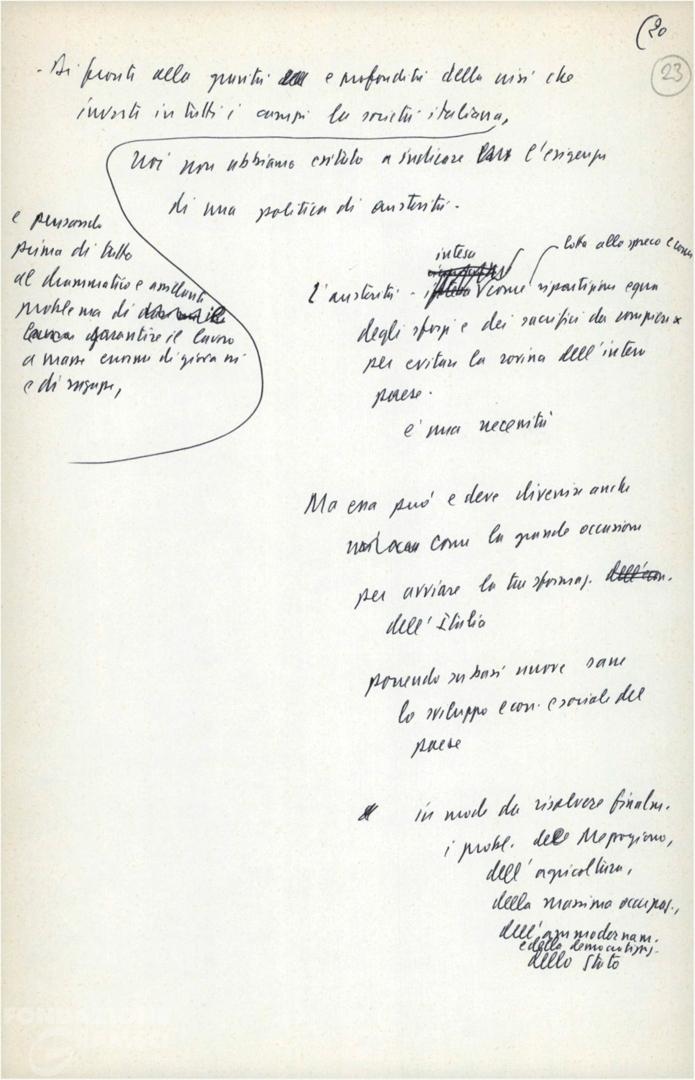 20
23
- Di fronte alla gravità e profondità della crisi che
investe in tutti i campi la società italiana,
noi non abbiamo esitato a indicare l'esigenza
di una politica di austerità.
e pensando
prima di tutto
al drammatico e assillante
problema di
garantire il lavoro
a masse enorme di giovani
e di ragazze,
lotta allo spreco e come
intesa
L'austerità - come ripartizione equa
degli sforzi e dei sacrifici da compiere x
per evitare la rovina dell'intero
paese.
è una necessità
Ma essa può e deve divenire anche
come la grande occasione
per avviare la trasformaz. dell'econ.
dell'Italia
ponendo su basi nuove sane
lo sviluppo econ. e sociale del
paese
in modo da risolvere finalm.
i probl. del Mezzogiorno,
dell'agricoltura,
della massima occupaz.,
dell'ammodernam.
e della democratizzaz.
dello Stato
FONDAZIONE
GRAMSCI